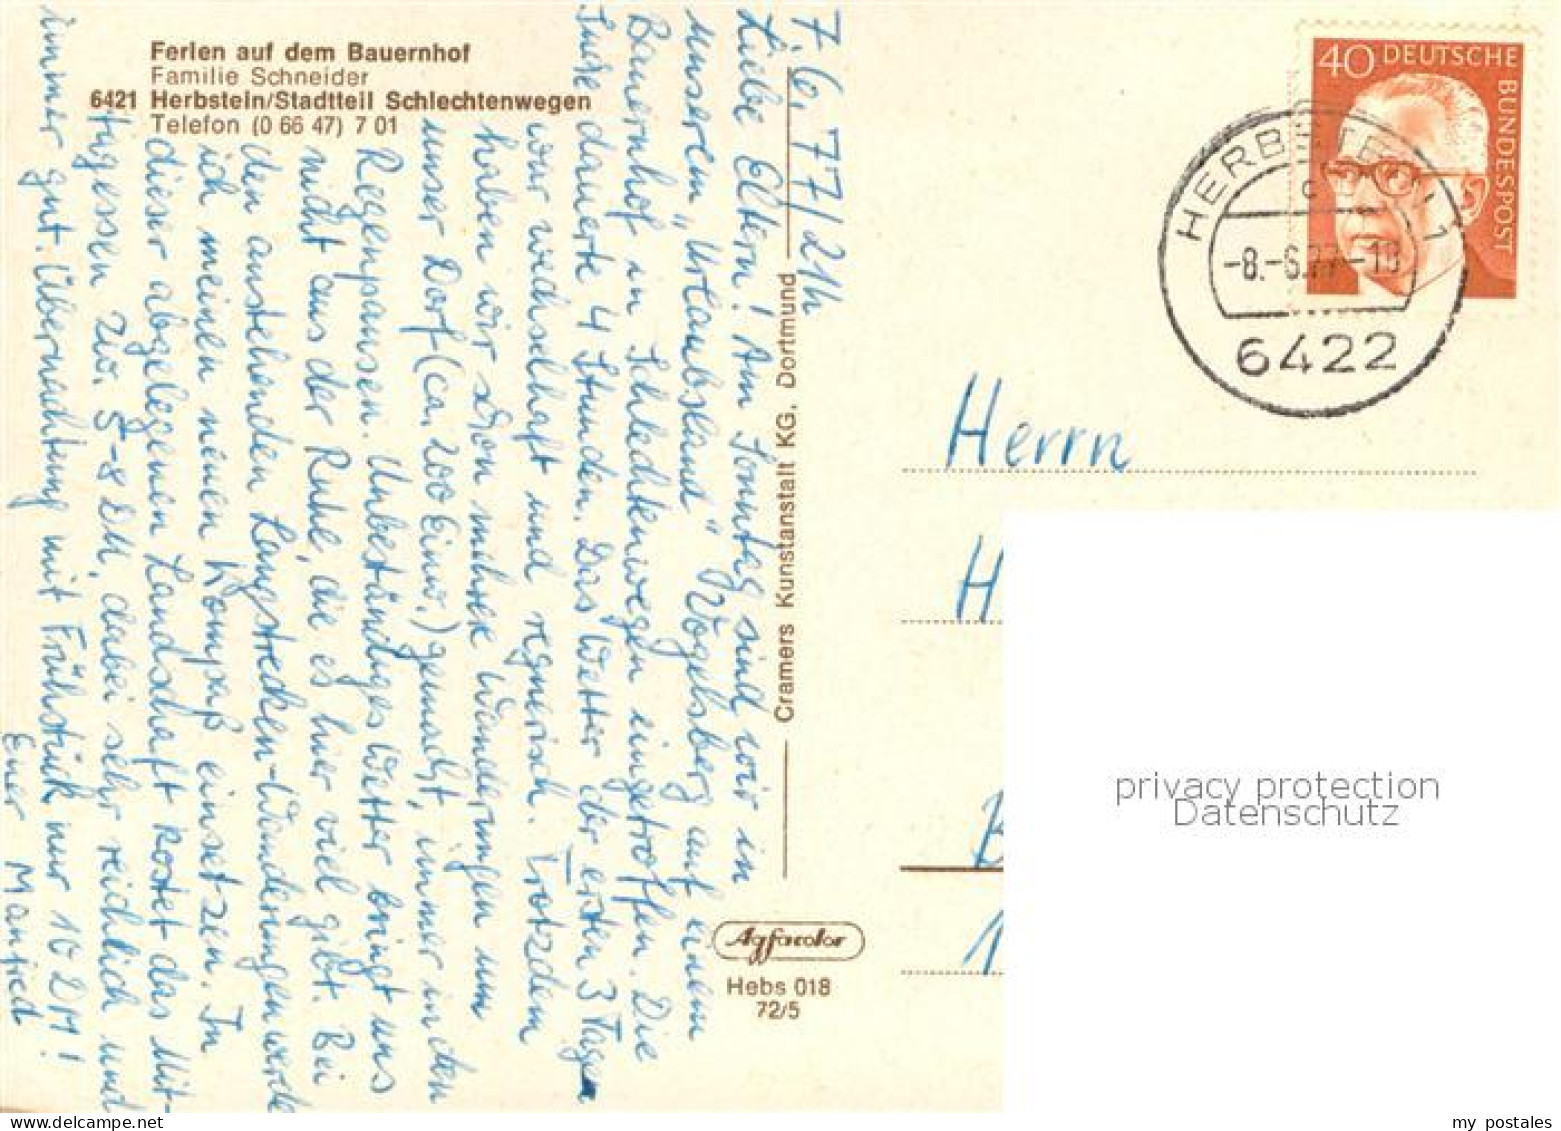 Ferien auf dem Bauernhof
Familie Schneider
6421 Herbstein/Stadtteil Schlechtenwegen
Telefon (0 66 47) 7 01
7.6.77/21h
Liebe Eltern! Am Sonntag sind wir in
unserem "Urlaubsland" Vogelsberg auf einem
Bauernhof in Schlechtenwegen eingetroffen. Die
dauerte 4 Stunden. Das Wetter der ersten 3 Tage
war wechselhaft und regnerisch. Trotzdem
haben wir schon mehrere Wanderungen um
unser Dorf (ca. 200 Einw.) gemacht, immer in den
Regenpausen. Unbeständiges Wetter bringt uns
nicht aus der Ruhe, die es hier viel gibt. Bei
den anstehenden Langstrecken-Wanderungen werde
ich meinen neuen Kompaß einsetzen. In
dieser abgelegenen Landschaft kostet das Mit-
tagessen zw. 5-8 DM, dabei sehr reichlich und
immer gut. Übernachtung mit Frühstück nur 10 DM!
Euer Manfred
Cramers Kunstanstalt KG, Dortmund
Agfacolor
Hebs 018
72/5
40 DEUTSCHE
BUNDESPOST
HERBSTEIN 1
-8.-6.77-18
6422
Herrn
H
B
1
privacy protection
Datenschutz
www.delcampe.net
my_postales